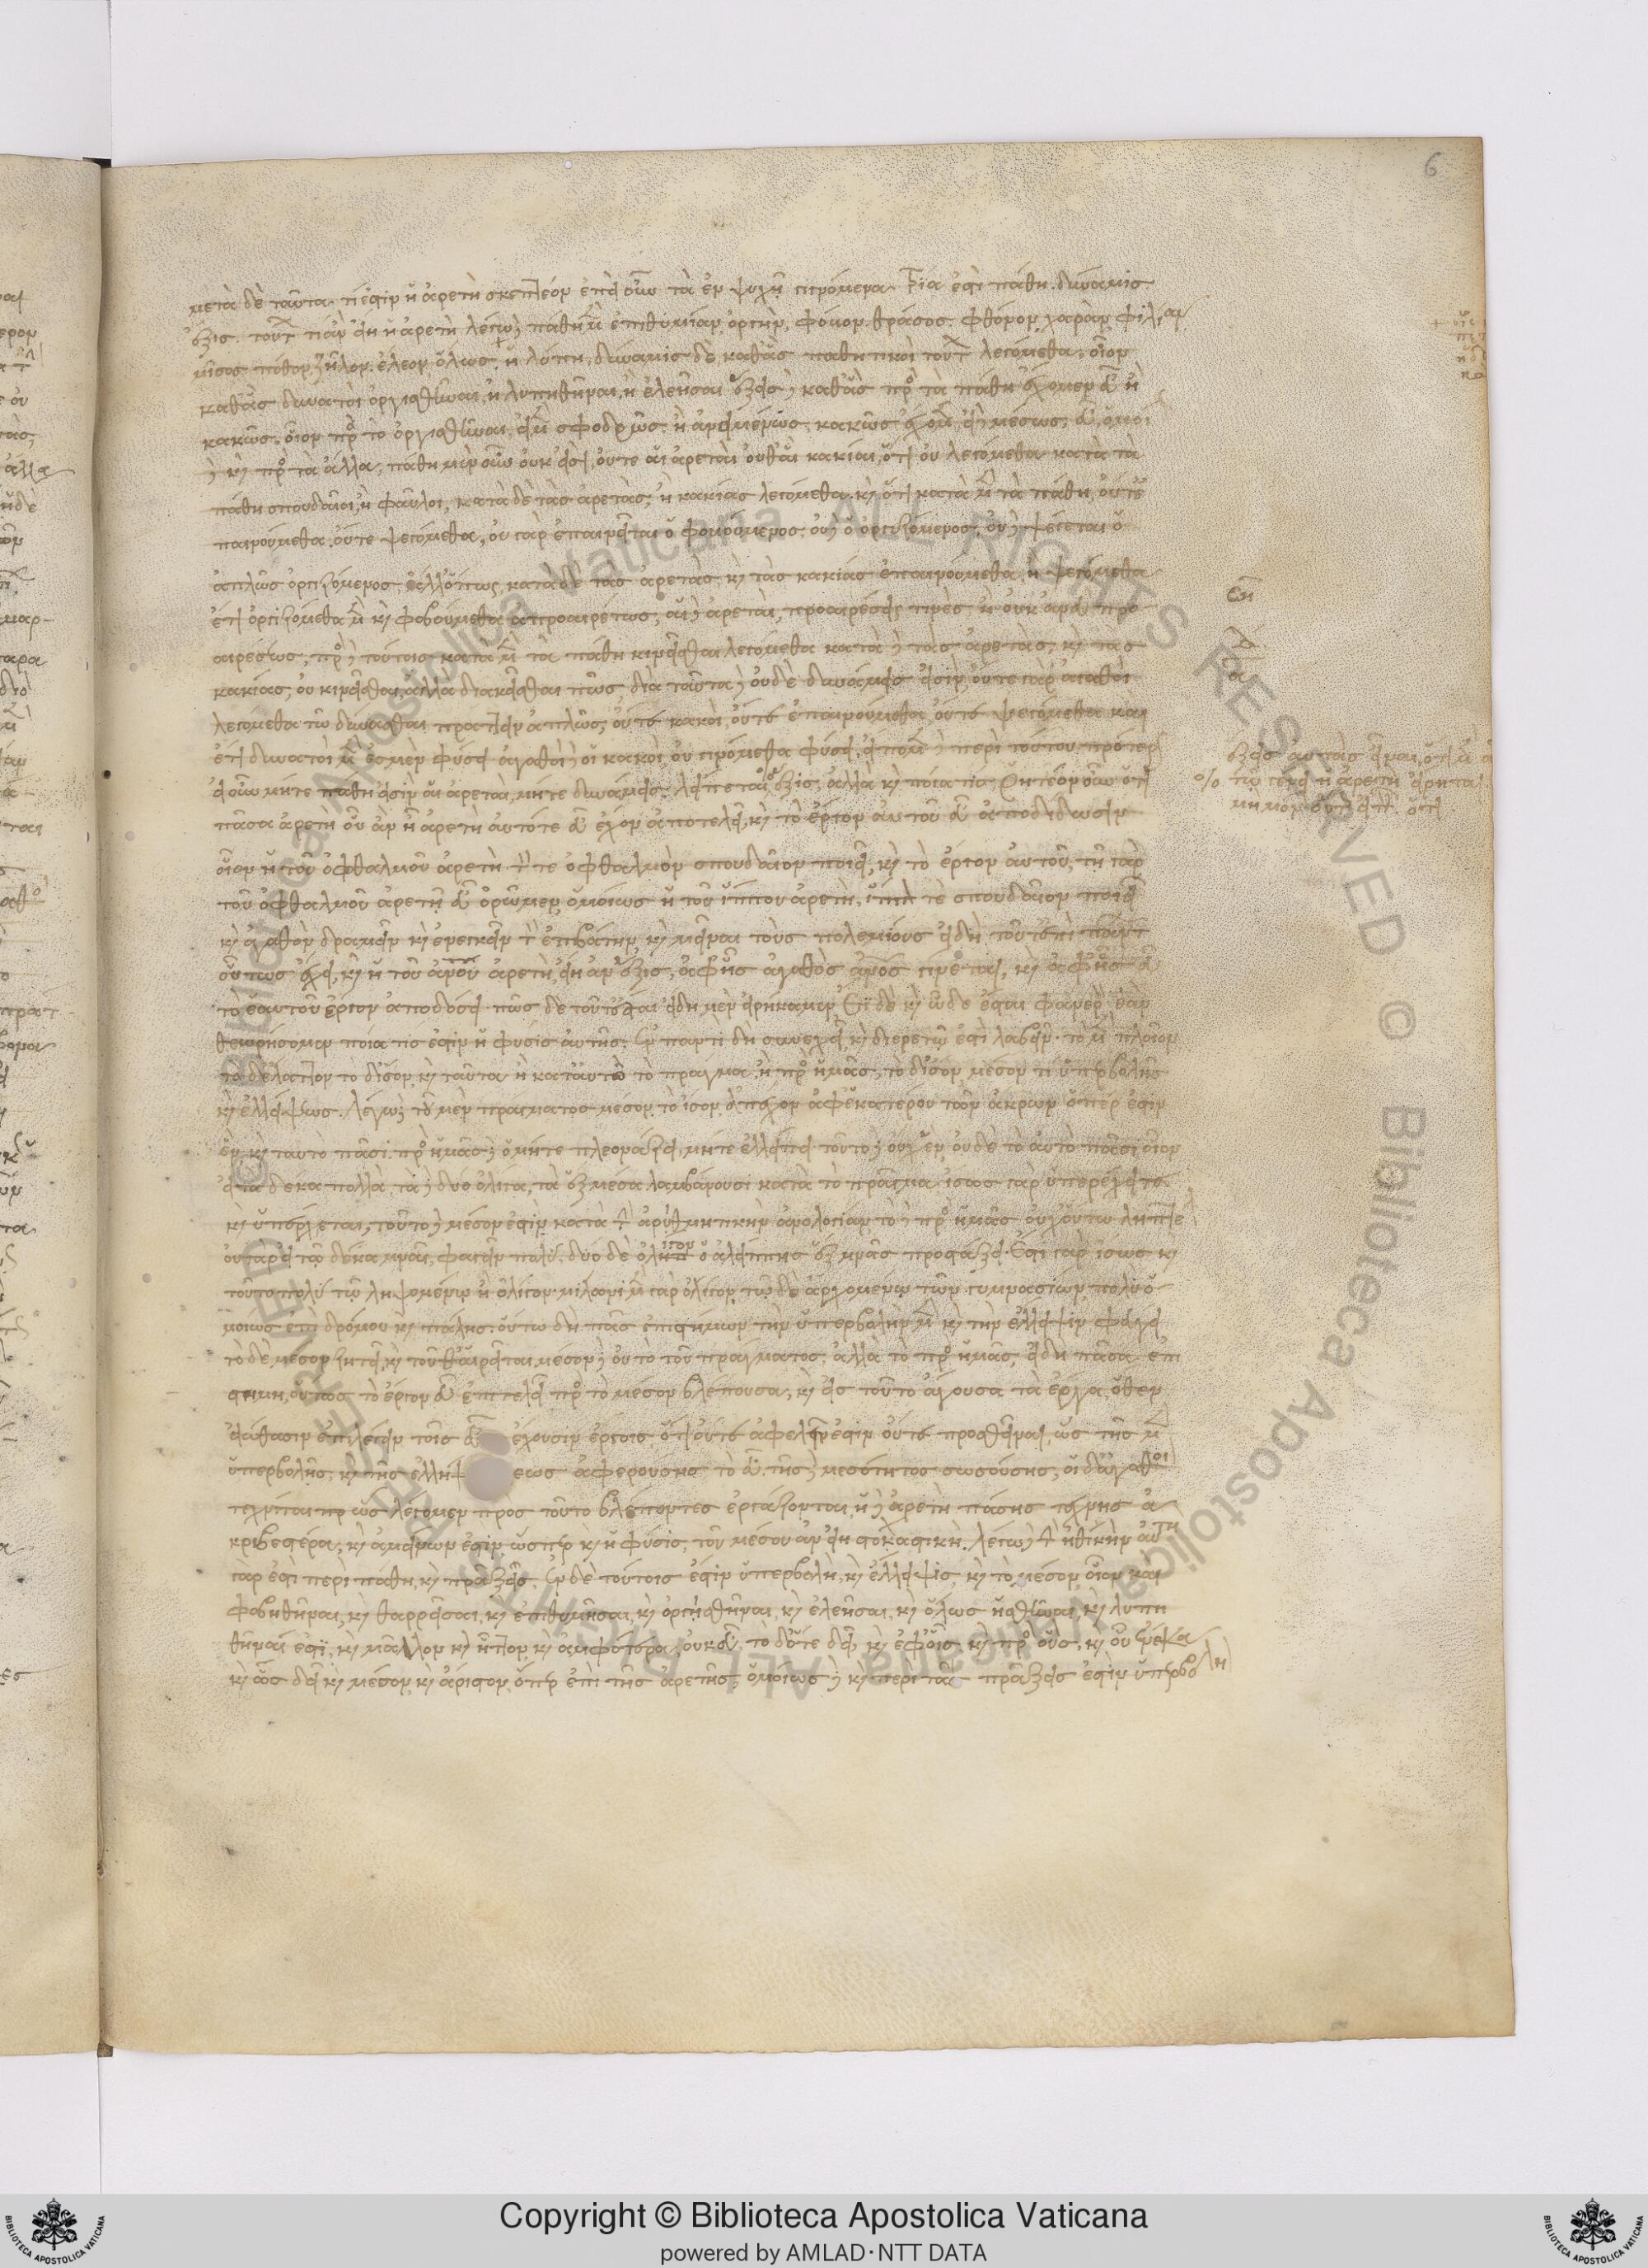 6
μετὰ δὲ ταῦτα τί ἐστιν ἡ ἀρετὴ σκεπτέον ἐπεὶ οὖν τὰ ἐν ψυχῇ γινόμενα τρία ἐστὶ πάθη δυνάμεις
ἕξεις τούτων τι ἂν εἴη ἡ ἀρετή λέγω δὲ πάθη μὲν ἐπιθυμίαν ὀργήν φόβον θράσος φθόνον χαράν φιλίαν
μῖσος πόθον ζῆλον ἔλεον ὅλως λύπη δυνάμεις δὲ καθ' ἃς παθητικοὶ τούτων λεγόμεθα οἷον
καθ' ἃς δυνατοὶ ὀργισθῆναι ἢ λυπηθῆναι ἢ ἐλεῆσαι ἕξεις δὲ καθ' ἃς πρὸς τὰ πάθη ἔχομεν εὖ ἢ
κακῶς οἷον πρὸς τὸ ὀργισθῆναι εἰ μὲν σφοδρῶς ἢ ἀνειμένως κακῶς ἔχομεν εἰ δὲ μέσως εὖ ὁμοί
δὲ καὶ πρὸς τὰ ἄλλα πάθη μὲν οὖν οὐκ εἰσὶν οὔτε αἱ ἀρεταὶ οὔθ' αἱ κακίαι ὅτι οὐ λεγόμεθα κατὰ τὰ
πάθη σπουδαῖοι ἢ φαῦλοι κατὰ δὲ τὰς ἀρετὰς ἢ κακίας λεγόμεθα καὶ ὅτι κατὰ μὲν τὰ πάθη οὔτε ἐ
παινούμεθα οὔτε ψεγόμεθα οὐ γὰρ ἐπαινεῖται ὁ φοβούμενος οὐδὲ ὁ ὀργιζόμενος οὐδὲ ψέγεται ὁ
ἁπλῶς ὀργιζόμενος ἀλλ' ὅπως κατὰ δὲ τὰς ἀρετὰς καὶ τὰς κακίας ἐπαινούμεθα ἢ ψεγόμεθα
ἔτι ὀργιζόμεθα μὲν καὶ φοβούμεθα ἀπροαιρέτως αἱ δὲ ἀρεταὶ προαιρέσεις τινὲς ἢ οὐκ ἄνευ προ
αιρέσεως πρὸς δὲ τούτοις κατὰ μὲν τὰ πάθη κινεῖσθαι λεγόμεθα κατὰ δὲ τὰς ἀρετὰς καὶ τὰς
κακίας οὐ κινεῖσθαι ἀλλὰ διακεῖσθαι πως διὰ ταῦτα δὲ οὐδὲ δυνάμεις εἰσίν οὔτε γὰρ ἀγαθοὶ
λεγόμεθα τῷ δύνασθαι πράττειν ἁπλῶς οὔτε κακοὶ οὔτε ἐπαινούμεθα οὔτε ψεγόμεθα καὶ
ἔτι δυνατοὶ μέν ἐσμεν φύσει ἀγαθοὶ δὲ ἢ κακοὶ οὐ γινόμεθα φύσει εἴπομεν δὲ περὶ τούτου πρότερ
εἰ οὖν μήτε πάθη εἰσὶν αἱ ἀρεταὶ μήτε δυνάμεις λείπεται ἕξεις ἀλλὰ καὶ ποία τις ῥητέον οὖν ὅτι
πᾶσα ἀρετὴ οὗ ἂν ᾖ ἀρετὴ αὐτό τε εὖ ἔχον ἀποτελεῖ καὶ τὸ ἔργον αὐτοῦ εὖ ἀποδίδωσιν
οἷον ἡ τοῦ ὀφθαλμοῦ ἀρετὴ τόν τε ὀφθαλμὸν σπουδαῖον ποιεῖ καὶ τὸ ἔργον αὐτοῦ τῇ γὰρ
τοῦ ὀφθαλμοῦ ἀρετῇ εὖ ὁρῶμεν ὁμοίως ἡ τοῦ ἵππου ἀρετὴ ἵππον τε σπουδαῖον ποιεῖ
καὶ ἀγαθὸν δραμεῖν καὶ ἐνεγκεῖν τὸν ἐπιβάτην καὶ μεῖναι τοὺς πολεμίους εἰ δὴ τοῦτ' ἐπὶ πάντων
οὕτως ἔχει καὶ ἡ τοῦ ἀνθρώπου ἀρετὴ εἴη ἂν ἕξις ἀφ' ἧς ἀγαθὸς ἄνθρωπος γίνεται καὶ ἀφ' ἧς εὖ
τὸ ἑαυτοῦ ἔργον ἀποδώσει πῶς δὲ τοῦτ' ἔσται ἤδη μὲν εἰρήκαμεν ἔτι δὲ καὶ ὧδε ἔσται φανερὸν ἐὰν
θεωρήσωμεν ποία τίς ἐστιν ἡ φύσις αὐτῆς ἐν παντὶ δὴ συνεχεῖ καὶ διαιρετῷ ἐστὶ λαβεῖν τὸ μὲν πλεῖον
τὸ δ' ἔλαττον τὸ δ' ἴσον καὶ ταῦτα ἢ κατ' αὐτὸ τὸ πρᾶγμα ἢ πρὸς ἡμᾶς τὸ δ' ἴσον μέσον τι ὑπερβολῆς
καὶ ἐλλείψεως λέγω δὲ τοῦ μὲν πράγματος μέσον τὸ ἴσον ἀπέχον ἀφ' ἑκατέρου τῶν ἄκρων ὅπερ ἐστὶν
ἓν καὶ ταὐτὸ πᾶσι πρὸς ἡμᾶς δὲ ὃ μήτε πλεονάζει μήτε ἐλλείπει τοῦτο δὲ οὐχ ἓν οὐδὲ τὸ αὐτὸ πᾶσι οἷον
εἰ τὰ δέκα πολλὰ τὰ δὲ δύο ὀλίγα τὰ ἓξ μέσα λαμβάνουσι κατὰ τὸ πρᾶγμα ἴσως γὰρ ὑπερέχει τε
καὶ ὑπερέχεται τοῦτο δὲ μέσον ἐστὶν κατὰ τὴν ἀριθμητικὴν ἀναλογίαν τὸ δὲ πρὸς ἡμᾶς οὐχ οὕτω ληπτέ
οὐ γὰρ εἰ τῷ δέκα μναῖ φαγεῖν πολὺ δύο δὲ ὀλίγον ὁ ἀλείπτης ἓξ μνᾶς προστάξει ἔστι γὰρ ἴσως καὶ
τοῦτο πολὺ τῷ ληψομένῳ ἢ ὀλίγον μίλωνι μὲν γὰρ ὀλίγον τῷ δὲ ἀρχομένῳ τῶν γυμνασίων πολύ ὁ
μοίως ἐπὶ δρόμου καὶ πάλης οὕτω δὴ πᾶς ἐπιστήμων τὴν ὑπερβολὴν μὲν καὶ τὴν ἔλλειψιν φεύγει
τὸ δὲ μέσον ζητεῖ καὶ τοῦθ' αἱρεῖται μέσον δὲ οὐ τὸ τοῦ πράγματος ἀλλὰ τὸ πρὸς ἡμᾶς εἰ δὴ πᾶσα ἐπι
στήμη οὕτως τὸ ἔργον εὖ ἐπιτελεῖ πρὸς τὸ μέσον βλέπουσα καὶ εἰς τοῦτο ἄγουσα τὰ ἔργα ὅθεν
εἰώθασιν ἐπιλέγειν τοῖς εὖ ἔχουσιν ἔργοις ὅτι οὔτε ἀφελεῖν ἐστιν οὔτε προσθεῖναι ὡς τῆς μὲν
ὑπερβολῆς καὶ τῆς ἐλλείψεως ἀφερούσης τὸ εὖ τῆς δὲ μεσότητος σωζούσης οἱ δ' ἀγαθοὶ
τεχνῖται ὡς λέγομεν πρὸς τοῦτο βλέποντες ἐργάζονται ἡ δὲ ἀρετὴ πάσης τέχνης ἀ
κριβεστέρα καὶ ἀμείνων ἐστὶν ὥσπερ καὶ ἡ φύσις τοῦ μέσου ἂν εἴη στοχαστική λέγω δὲ τὴν ἠθικὴν αὕτη
γάρ ἐστι περὶ πάθη καὶ πράξεις ἐν δὲ τούτοις ἐστὶν ὑπερβολὴ καὶ ἔλλειψις καὶ τὸ μέσον οἷον καὶ
φοβηθῆναι καὶ θαρρῆσαι καὶ ἐπιθυμῆσαι καὶ ὀργισθῆναι καὶ ἐλεῆσαι καὶ ὅλως ἡσθῆναι καὶ λυπη
θῆναι ἔστι καὶ μᾶλλον καὶ ἧττον καὶ ἀμφότερα οὐκ εὖ τὸ δ' ὅτε δεῖ καὶ ἐφ' οἷς καὶ πρὸς οὓς καὶ οὗ ἕνεκα
καὶ ὡς δεῖ καὶ μέσον καὶ ἄριστον ὅπερ ἐπὶ τῆς ἀρετῆς ὁμοίως δὲ καὶ περὶ τὰς πράξεις ἐστὶν ὑπερβολὴ
Copyright © Biblioteca Apostolica Vaticana
powered by AMLAD·NTT DATA